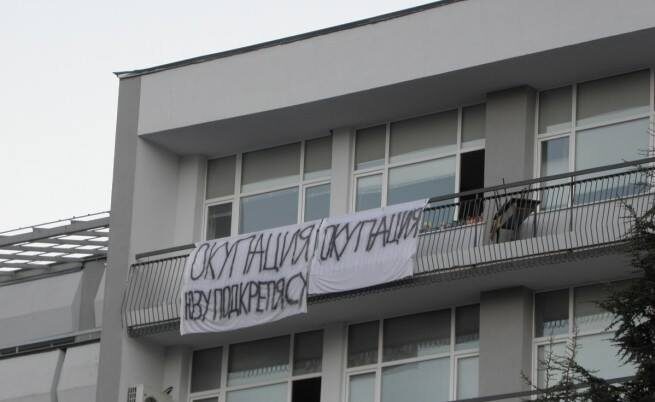 ОКУПАЦИЯ
НБУ ПОДКРЕПЯ СУ
ОКУПАЦИЯ